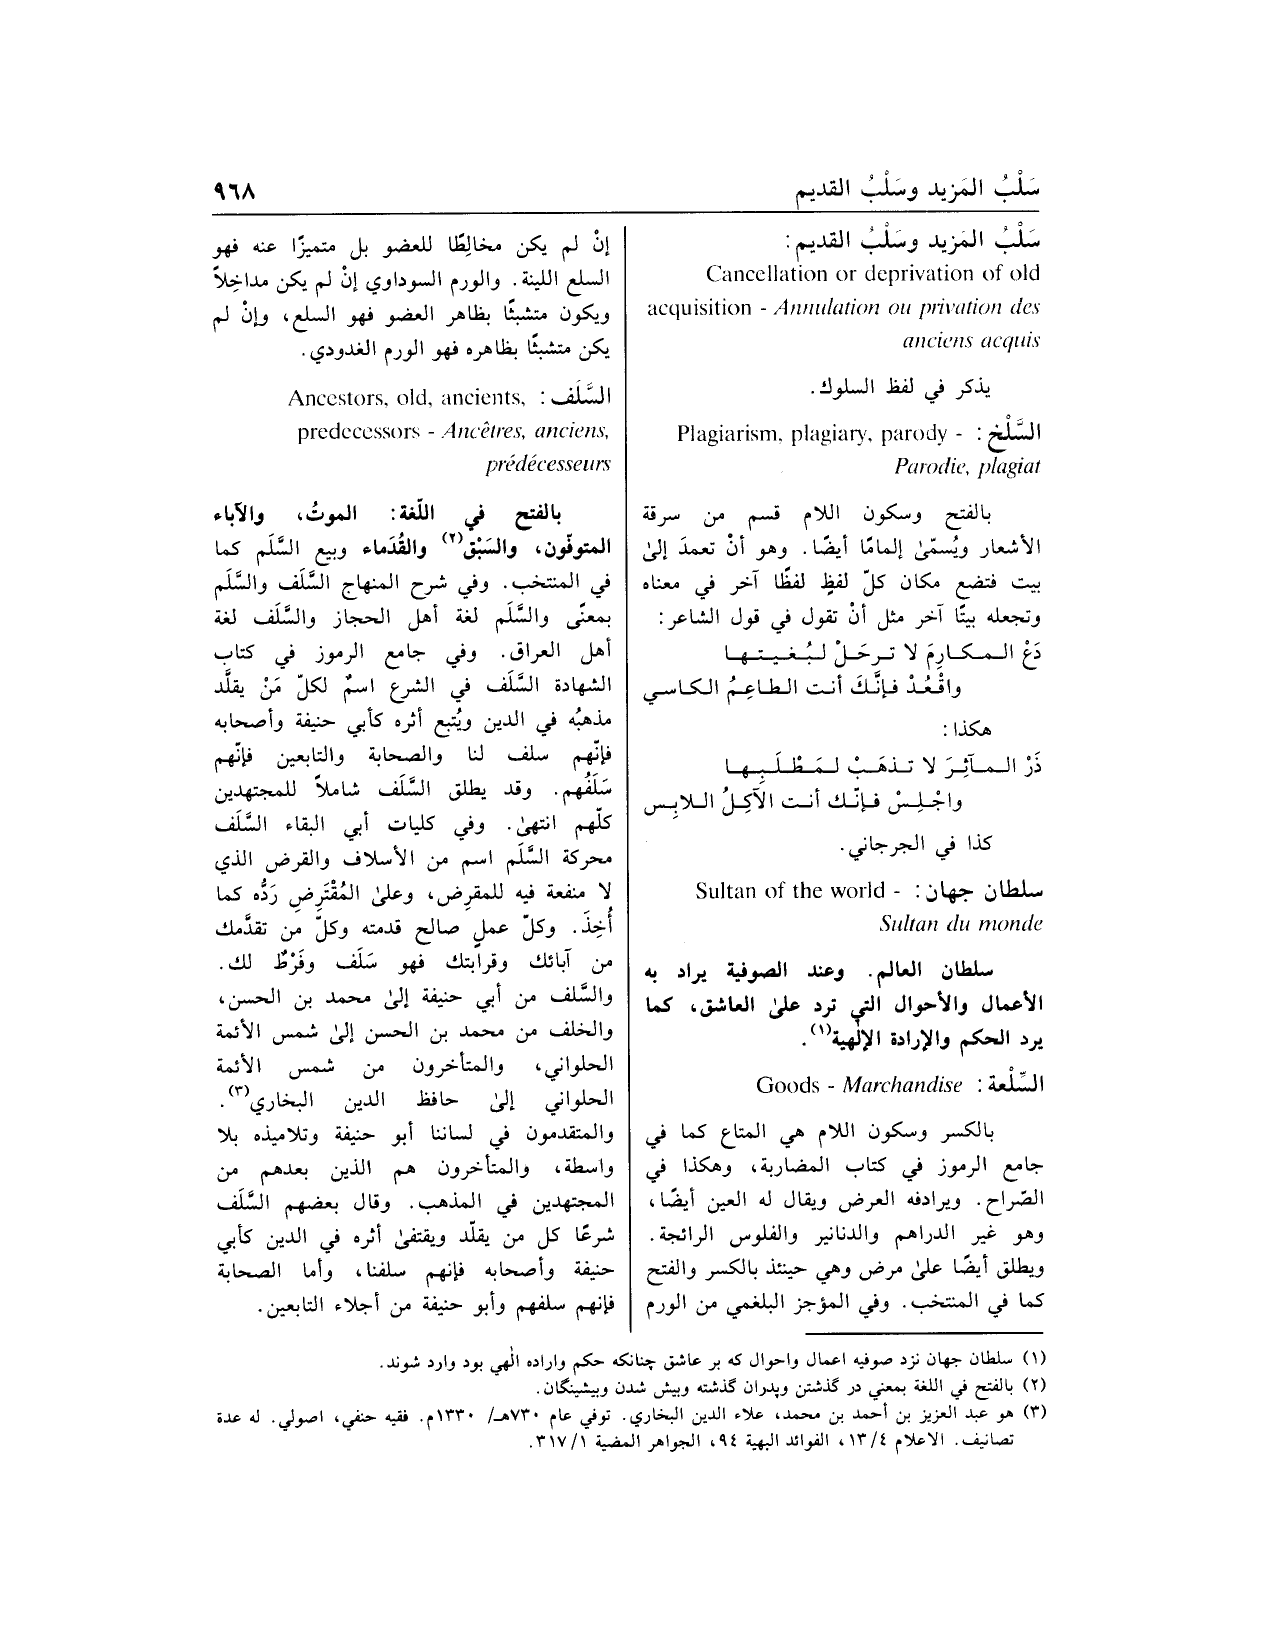 سَلْبُ المَزيد وسَلْبُ القديم
٩٦٨
سَلْبُ المَزيد وسَلْبُ القديم:
Cancellation or deprivation of old
acquisition - Annulation ou privation des
anciens acquis
يذكر في لفظ السلوك.
السَّلْخ: Plagiarism, plagiary, parody -
Parodie, plagiat
بالفتح وسكون اللام قسم من سرقة
الأشعار ويُسمّىٰ إلمامًا أيضًا. وهو أنْ تعمدَ إلىٰ
بيت فتضع مكان كلّ لفظٍ لفظًا آخر في معناه
وتجعله بيتًا آخر مثل أنْ تقول في قول الشاعر:
دَعْ المكارِمَ لا ترحَلْ لبُغيتها
واقْعُدْ فإنَّكَ أنت الطاعِمُ الكاسي
هكذا:
ذَرْ المآثِرَ لا تذهَبْ لمَطْلَبِها
واجْلِسْ فإنّك أنت الآكِلُ اللابِس
كذا في الجرجاني.
سلطان جهان: Sultan of the world -
Sultan du monde
سلطان العالم. وعند الصوفية يراد به
الأعمال والأحوال التي ترد علىٰ العاشق، كما
يرد الحكم والإرادة الإلٰهية(١).
السِّلْعة: Goods - Marchandise
بالكسر وسكون اللام هي المتاع كما في
جامع الرموز في كتاب المضاربة، وهكذا في
الصّراح. ويرادفه العرض ويقال له العين أيضًا،
وهو غير الدراهم والدنانير والفلوس الرائجة.
ويطلق أيضًا علىٰ مرض وهي حينئذ بالكسر والفتح
كما في المنتخب. وفي المؤجز البلغمي من الورم
إنْ لم يكن مخالِطًا للعضو بل متميزًا عنه فهو
السلع اللينة. والورم السوداوي إنْ لم يكن مداخِلاً
ويكون متشبثًا بظاهر العضو فهو السلع، وإنْ لم
يكن متشبثًا بظاهره فهو الورم الغدودي.
السَّلَف: Ancestors, old, ancients,
predecessors - Ancêtres, anciens,
prédécesseurs
بالفتح في اللّغة: الموتُ، والآباء
المتوفّون، والسَبْق(٢) والقُدَماء وبيع السَّلَم كما
في المنتخب. وفي شرح المنهاج السَّلَف والسَّلَم
بمعنًى والسَّلَم لغة أهل الحجاز والسَّلَف لغة
أهل العراق. وفي جامع الرموز في كتاب
الشهادة السَّلَف في الشرع اسمٌ لكلّ مَنْ يقلَّد
مذهبُه في الدين ويُتبع أثره كأبي حنيفة وأصحابه
فإنّهم سلف لنا والصحابة والتابعين فإنّهم
سَلَفُهم. وقد يطلق السَّلَف شاملاً للمجتهدين
كلّهم انتهىٰ. وفي كليات أبي البقاء السَّلَف
محركة السَّلَم اسم من الأسلاف والقرض الذي
لا منفعة فيه للمقرض، وعلىٰ المُقْتَرِضِ رَدُّه كما
أُخِذَ. وكلّ عملٍ صالح قدمته وكلّ من تقدَّمك
من آبائك وقرابتك فهو سَلَف وفَرْطٌ لك.
والسَّلف من أبي حنيفة إلىٰ محمد بن الحسن،
والخلف من محمد بن الحسن إلىٰ شمس الأئمة
الحلواني، والمتأخرون من شمس الأئمة
الحلواني إلىٰ حافظ الدين البخاري(٣).
والمتقدمون في لساننا أبو حنيفة وتلاميذه بلا
واسطة، والمتأخرون هم الذين بعدهم من
المجتهدين في المذهب. وقال بعضهم السَّلَف
شرعًا كل من يقلّد ويقتفىٰ أثره في الدين كأبي
حنيفة وأصحابه فإنهم سلفنا، وأما الصحابة
فإنهم سلفهم وأبو حنيفة من أجلاء التابعين.
(١) سلطان جهان نزد صوفيه اعمال واحوال كه بر عاشق چنانكه حكم واراده الٰهي بود وارد شوند.
(٢) بالفتح في اللغة بمعني در گذشتن وپدران گذشته وبيش شدن وبيشينگان.
(٣) هو عبد العزيز بن أحمد بن محمد، علاء الدين البخاري. توفي عام ٧٣٠هـ/ ١٣٣٠م. فقيه حنفي، اصولي. له عدة
تصانيف. الاعلام ١٣/٤، الفوائد البهية ٩٤، الجواهر المضية ٣١٧/١.